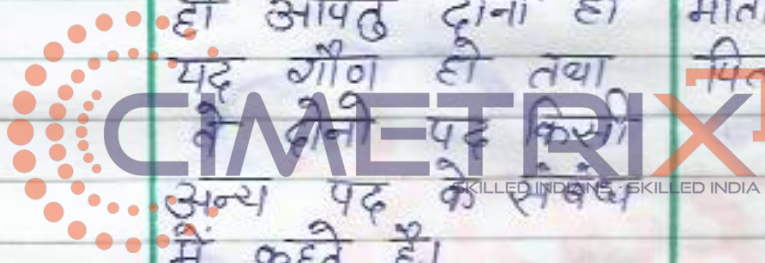 हो अपितु दोनों ही
पद गौण हो तथा
वे दोनो पद किसी
अन्य पद के संबंध
में कहते है।
माता
पित
CIMETRIX
SKILLED INDIANS · SKILLED INDIA